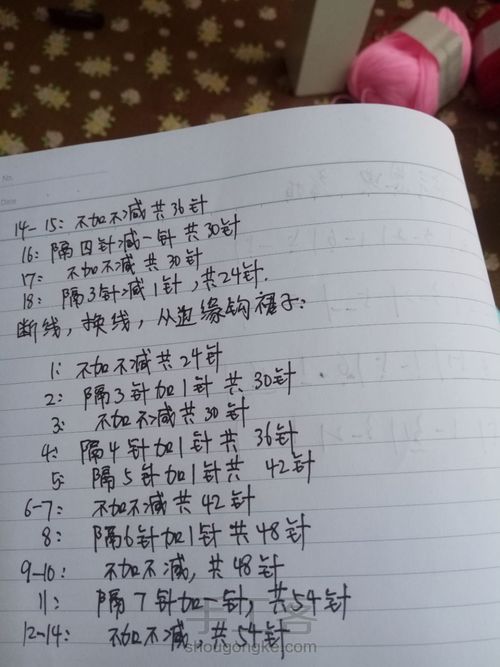 No.
Date
14-15: 不加不减共36针
16: 隔四针减一针共30针
17: 不加不减共30针
18: 隔3针减1针,共24针.
断线,换线,从边缘钩裙子:
1: 不加不减共24针
2: 隔3针加1针共30针
3: 不加不减共30针
4: 隔4针加1针共36针
5: 隔5针加1针共42针
6-7: 不加不减共42针
8: 隔6针加1针共48针
9-10: 不加不减,共48针
11: 隔7针加一针,共54针
12-14: 不加不减,共54针
shougongke.com